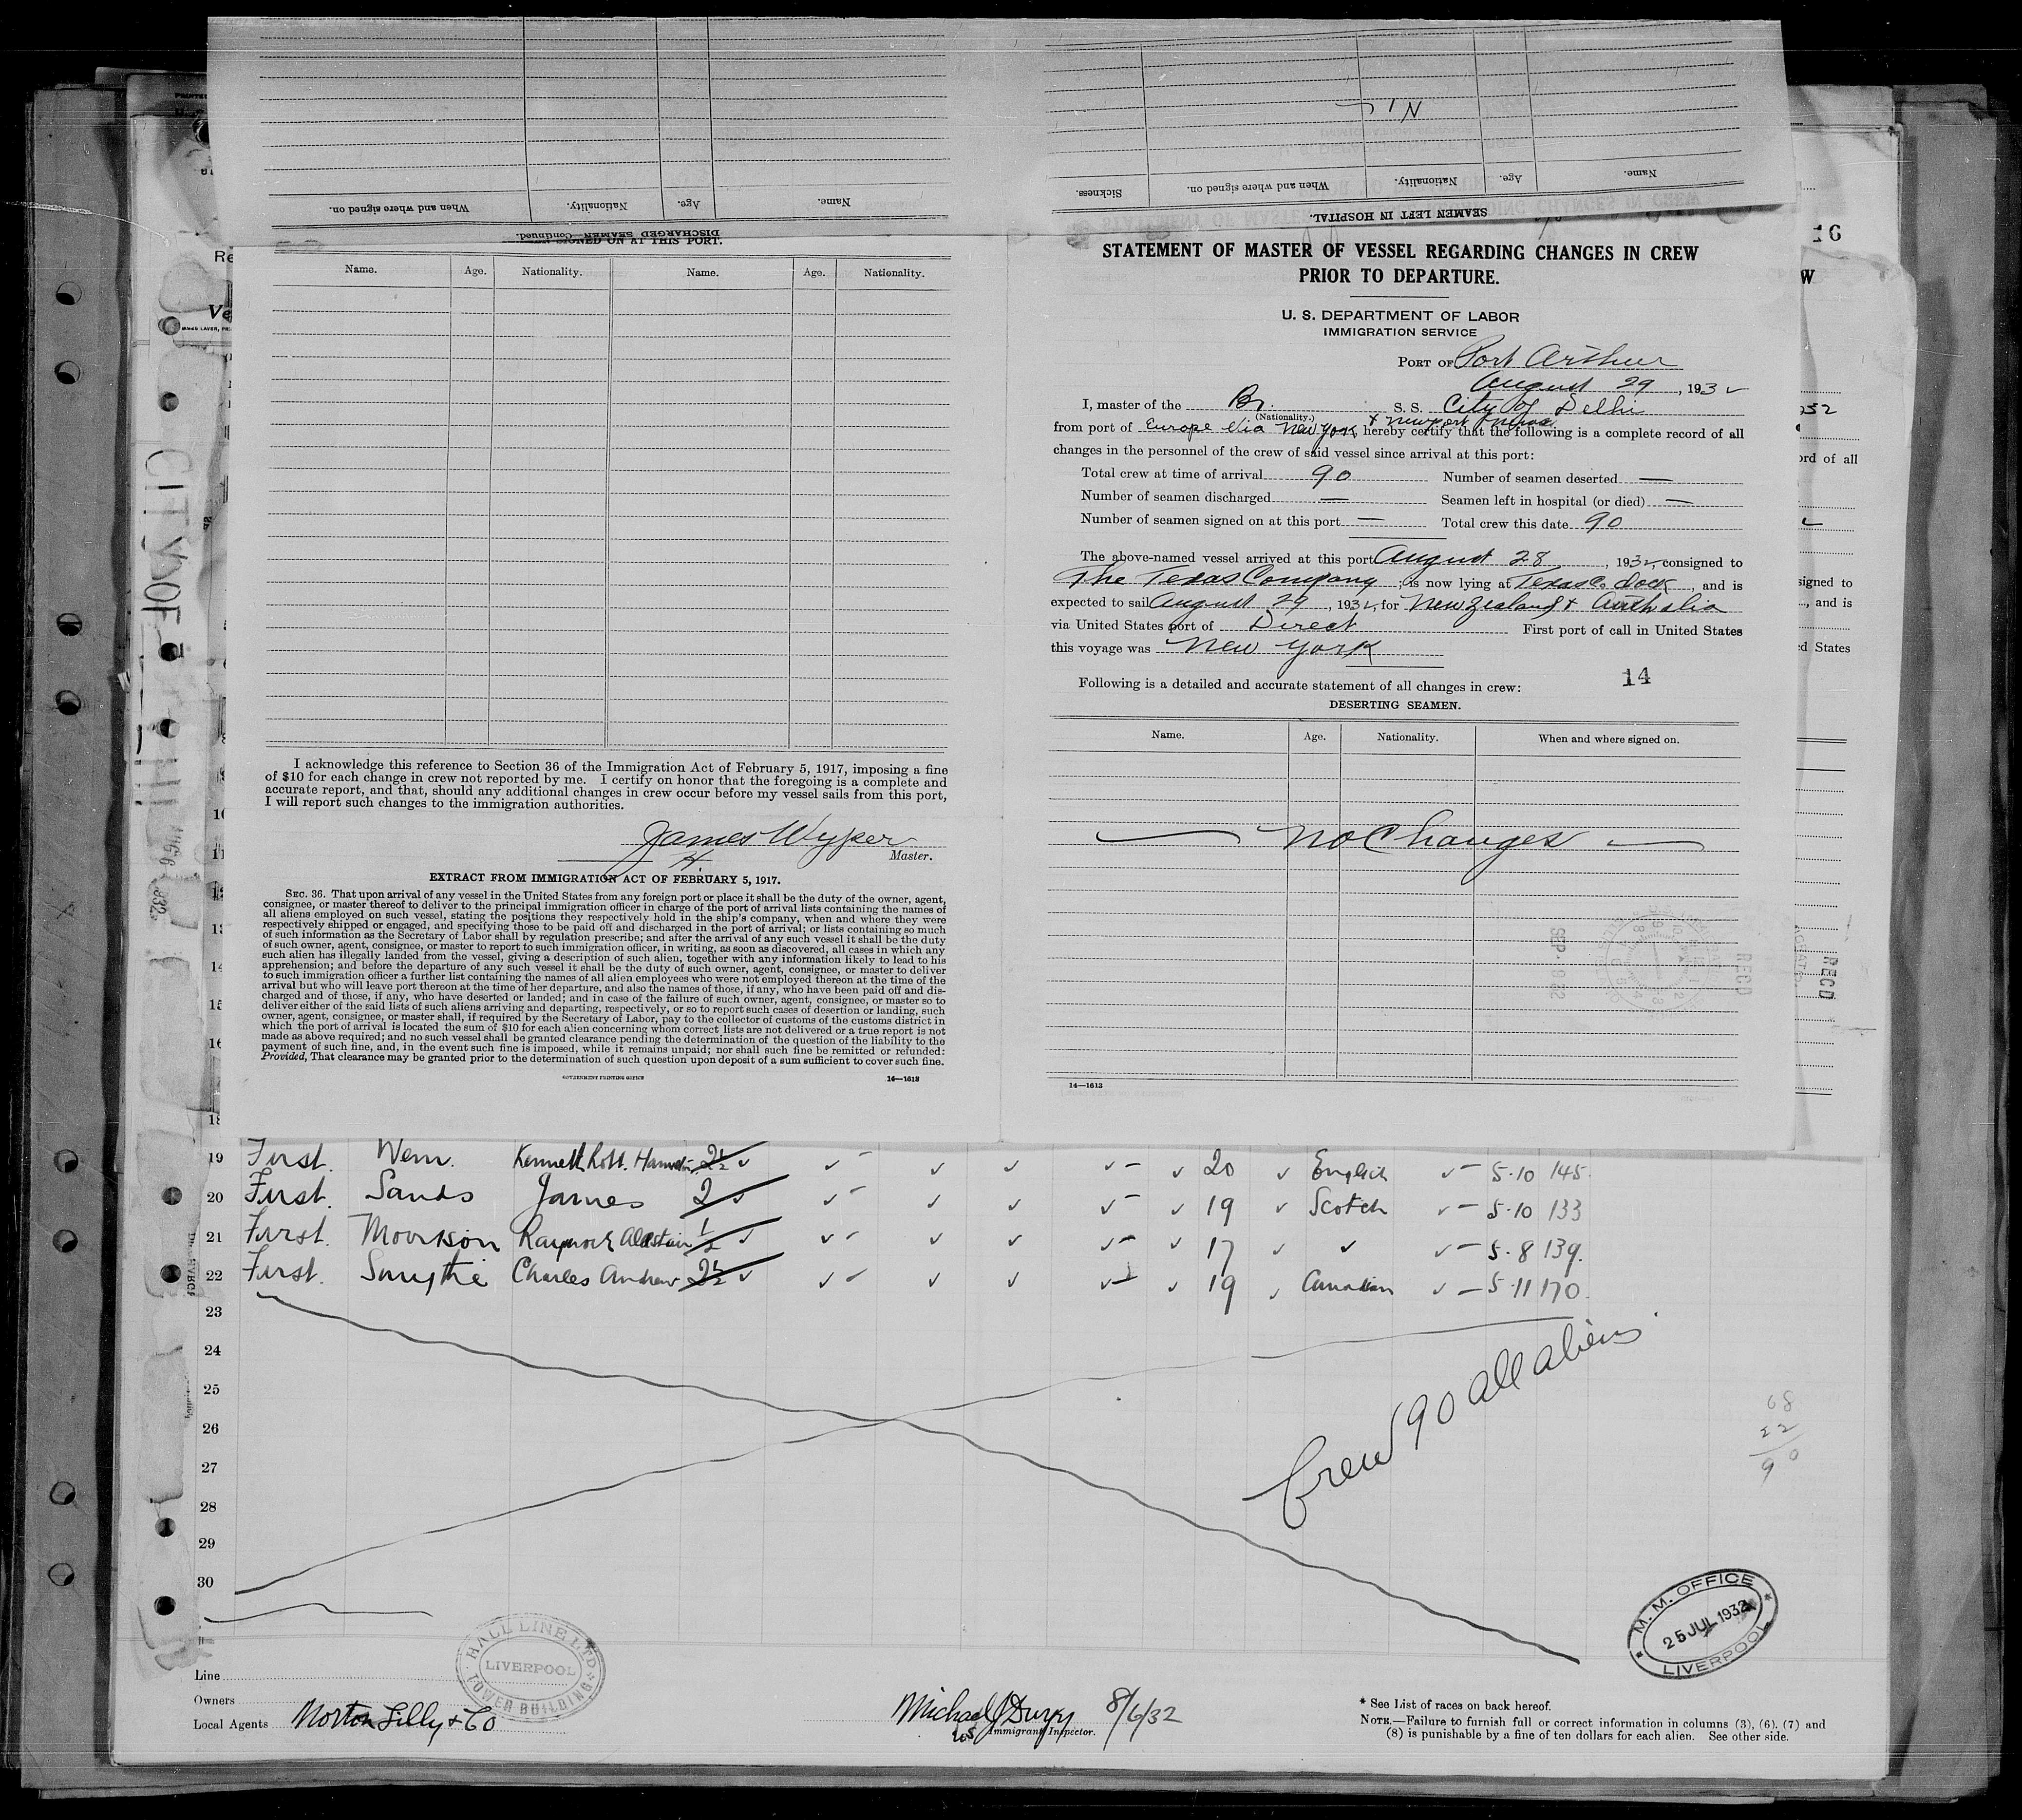 Sickness.
When and where signed on.
Nationality.
Age.
Name.
SEAMEN LEFT IN HOSPITAL.
When and where signed on.
Nationality.
Age.
Name.
DISCHARGED SEAMEN—Continued.
SIGNED ON AT THIS PORT.
Name. Age. Nationality. Name. Age. Nationality.
I acknowledge this reference to Section 36 of the Immigration Act of February 5, 1917, imposing a fine
of $10 for each change in crew not reported by me. I certify on honor that the foregoing is a complete and
accurate report, and that, should any additional changes in crew occur before my vessel sails from this port,
I will report such changes to the immigration authorities.
James Wyper
Master.
EXTRACT FROM IMMIGRATION ACT OF FEBRUARY 5, 1917.
SEC. 36. That upon arrival of any vessel in the United States from any foreign port or place it shall be the duty of the owner, agent,
consignee, or master thereof to deliver to the principal immigration officer in charge of the port of arrival lists containing the names of
all aliens employed on such vessel, stating the positions they respectively hold in the ship's company, when and where they were
respectively shipped or engaged, and specifying those to be paid off and discharged in the port of arrival; or lists containing so much
of such information as the Secretary of Labor shall by regulation prescribe; and after the arrival of any such vessel it shall be the duty
of such owner, agent, consignee, or master to report to such immigration officer, in writing, as soon as discovered, all cases in which any
such alien has illegally landed from the vessel, giving a description of such alien, together with any information likely to lead to his
apprehension; and before the departure of any such vessel it shall be the duty of such owner, agent, consignee, or master to deliver
to such immigration officer a further list containing the names of all alien employees who were not employed thereon at the time of the
arrival but who will leave port thereon at the time of her departure, and also the names of those, if any, who have been paid off and dis-
charged and of those, if any, who have deserted or landed; and in case of the failure of such owner, agent, consignee, or master so to
deliver either of the said lists of such aliens arriving and departing, respectively, or so to report such cases of desertion or landing, such
owner, agent, consignee, or master shall, if required by the Secretary of Labor, pay to the collector of customs of the customs district in
which the port of arrival is located the sum of $10 for each alien concerning whom correct lists are not delivered or a true report is not
made as above required; and no such vessel shall be granted clearance pending the determination of the question of the liability to the
payment of such fine, and, in the event such fine is imposed, while it remains unpaid; nor shall such fine be remitted or refunded:
Provided, That clearance may be granted prior to the determination of such question upon deposit of a sum sufficient to cover such fine.
GOVERNMENT PRINTING OFFICE 14—1613
STATEMENT OF MASTER OF VESSEL REGARDING CHANGES IN CREW
PRIOR TO DEPARTURE.
U. S. DEPARTMENT OF LABOR
IMMIGRATION SERVICE
PORT OF Port Arthur
August 29, 1932
I, master of the Br. S. S. City of Delhi
(Nationality.)
from port of Europe via New York, hereby certify that the following is a complete record of all
changes in the personnel of the crew of said vessel since arrival at this port:
Total crew at time of arrival 90 Number of seamen deserted —
Number of seamen discharged — Seamen left in hospital (or died) —
Number of seamen signed on at this port — Total crew this date 90
The above-named vessel arrived at this port August 28, 1932, consigned to
The Texas Company; is now lying at Texas Co. dock, and is
expected to sail August 29, 1932, for New Zealand & Australia
via United States port of Direct First port of call in United States
this voyage was New York
Following is a detailed and accurate statement of all changes in crew:
14
DESERTING SEAMEN.
Name. Age. Nationality. When and where signed on.
— No Changes —
SEP. 1932
RECD
14—1613
16
W
CITY OF DELHI
RECD
19 First. Wem. Kenneth Robt. 2½ 20 English 5·10 145
20 First. Sands James 2 19 Scotch 5·10 133
21 First. Morrison Raymond Alastair ½ 17 5·8 139
22 First. Smythe Charles Andrew 2½ 19 Canadian 5·11 170
23
24
25
26
27
28
29
30
Crew 90 all aliens
68
22
90
HALL LINE LTD
LIVERPOOL
TOWER BUILDING
M. M. OFFICE
25 JUL 1932
LIVERPOOL
Line
Owners
Local Agents Norton Lilly & Co
Michael J Durey 8/6/32
Immigrant Inspector.
* See List of races on back hereof.
NOTE.—Failure to furnish full or correct information in columns (3), (6), (7) and
(8) is punishable by a fine of ten dollars for each alien. See other side.